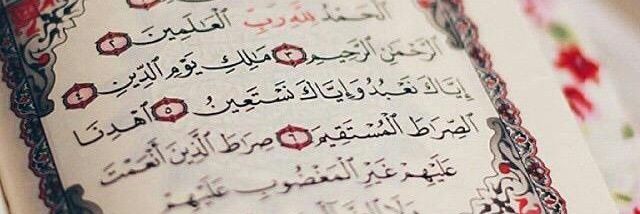 الْحَمْدُ لِلَّهِ رَبِّ الْعَالَمِينَ ٢
الرَّحْمَنِ الرَّحِيمِ ٣ مَالِكِ يَوْمِ الدِّينِ ٤
إِيَّاكَ نَعْبُدُ وَإِيَّاكَ نَسْتَعِينُ ٥ اهْدِنَا
الصِّرَاطَ الْمُسْتَقِيمَ ٦ صِرَاطَ الَّذِينَ أَنْعَمْتَ
عَلَيْهِمْ غَيْرِ الْمَغْضُوبِ عَلَيْهِمْ
وَلَا الضَّالِّينَ